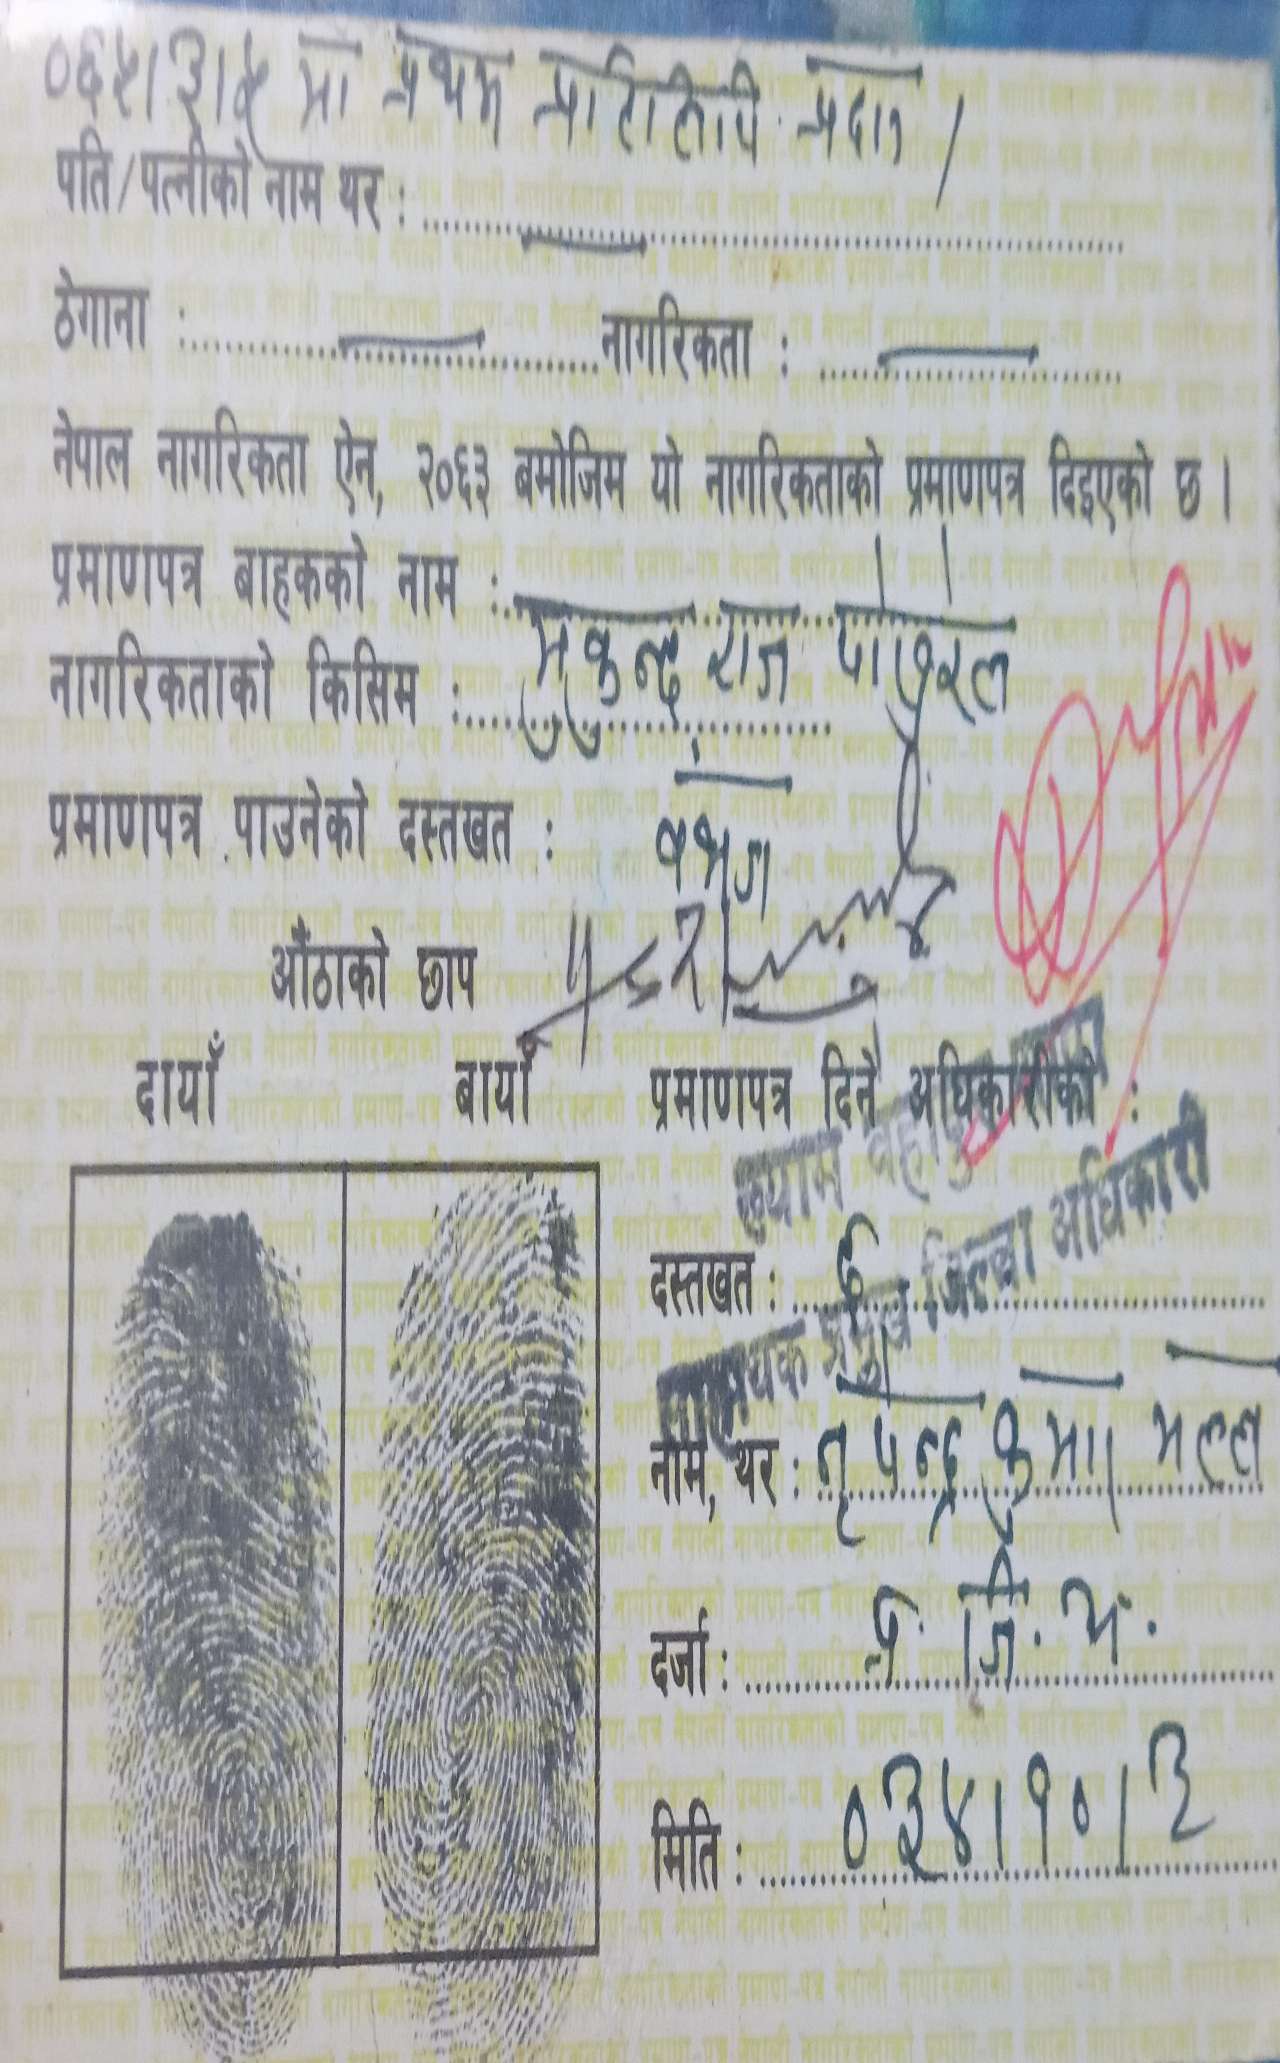 ०६५।३।५ मा प्रथम प्रतिलिपि प्रदान।
पति/पत्नीको नाम थर :
ठेगाना : नागरिकता :
नेपाल नागरिकता ऐन, २०६३ बमोजिम यो नागरिकताको प्रमाणपत्र दिइएको छ ।
प्रमाणपत्र बाहकको नाम : मुकुन्द राज पौडेल
नागरिकताको किसिम : वंशज
प्रमाणपत्र पाउनेको दस्तखत :
औंठाको छाप
दायाँ बायाँ प्रमाणपत्र दिने अधिकारीको :
श्याम
दस्तखत :
सहायक प्रमुख जिल्ला अधिकारी
नाम, थर : नृपेन्द्र कुमार मल्ल
दर्जा : प्र. जि. अ.
मिति : ०३४।१०।२